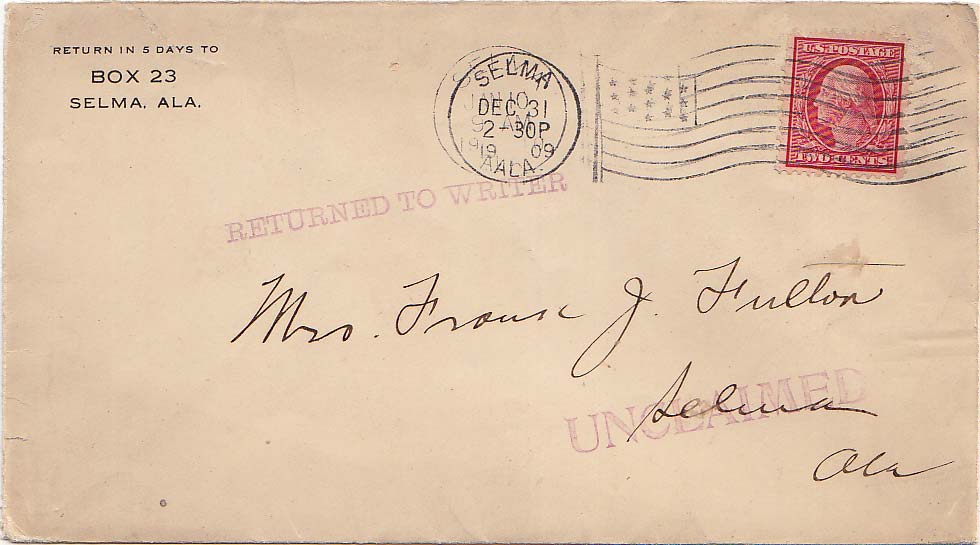 RETURN IN 5 DAYS TO
BOX 23
SELMA, ALA.
SELMA
DEC 31
2-30P
1909
ALA.
U.S. POSTAGE
TWO CENTS
RETURNED TO WRITER
Mrs. Frank J. Fulton
Selma
Ala
UNCLAIMED